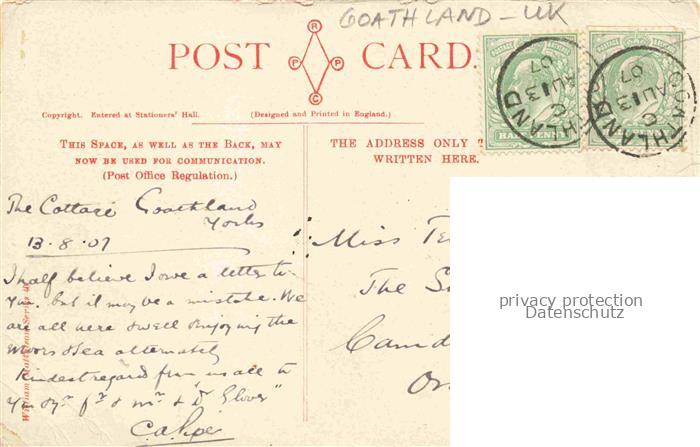 GOATHLAND - UK
POST CARD.
R
P P
C
Copyright. Entered at Stationers' Hall. (Designed and Printed in England.)
THIS SPACE, AS WELL AS THE BACK, MAY
NOW BE USED FOR COMMUNICATION.
(Post Office Regulation.)
THE ADDRESS ONLY T
WRITTEN HERE.
HALF PENNY
GOATHLAND
C
AU 13
07
GOATHLAND
C
AU 13
07
The Cottage Goathland
Yorks
13.8.07
I half believe I owe a letter to
you. but it may be a mistake. We
are all here & well enjoying the
Moors & Sea alternately
Kindest regards from us all to
you & Mr & Dr Glover"
Miss Te
The S
Camd
privacy protection
Datenschutz
William
Series